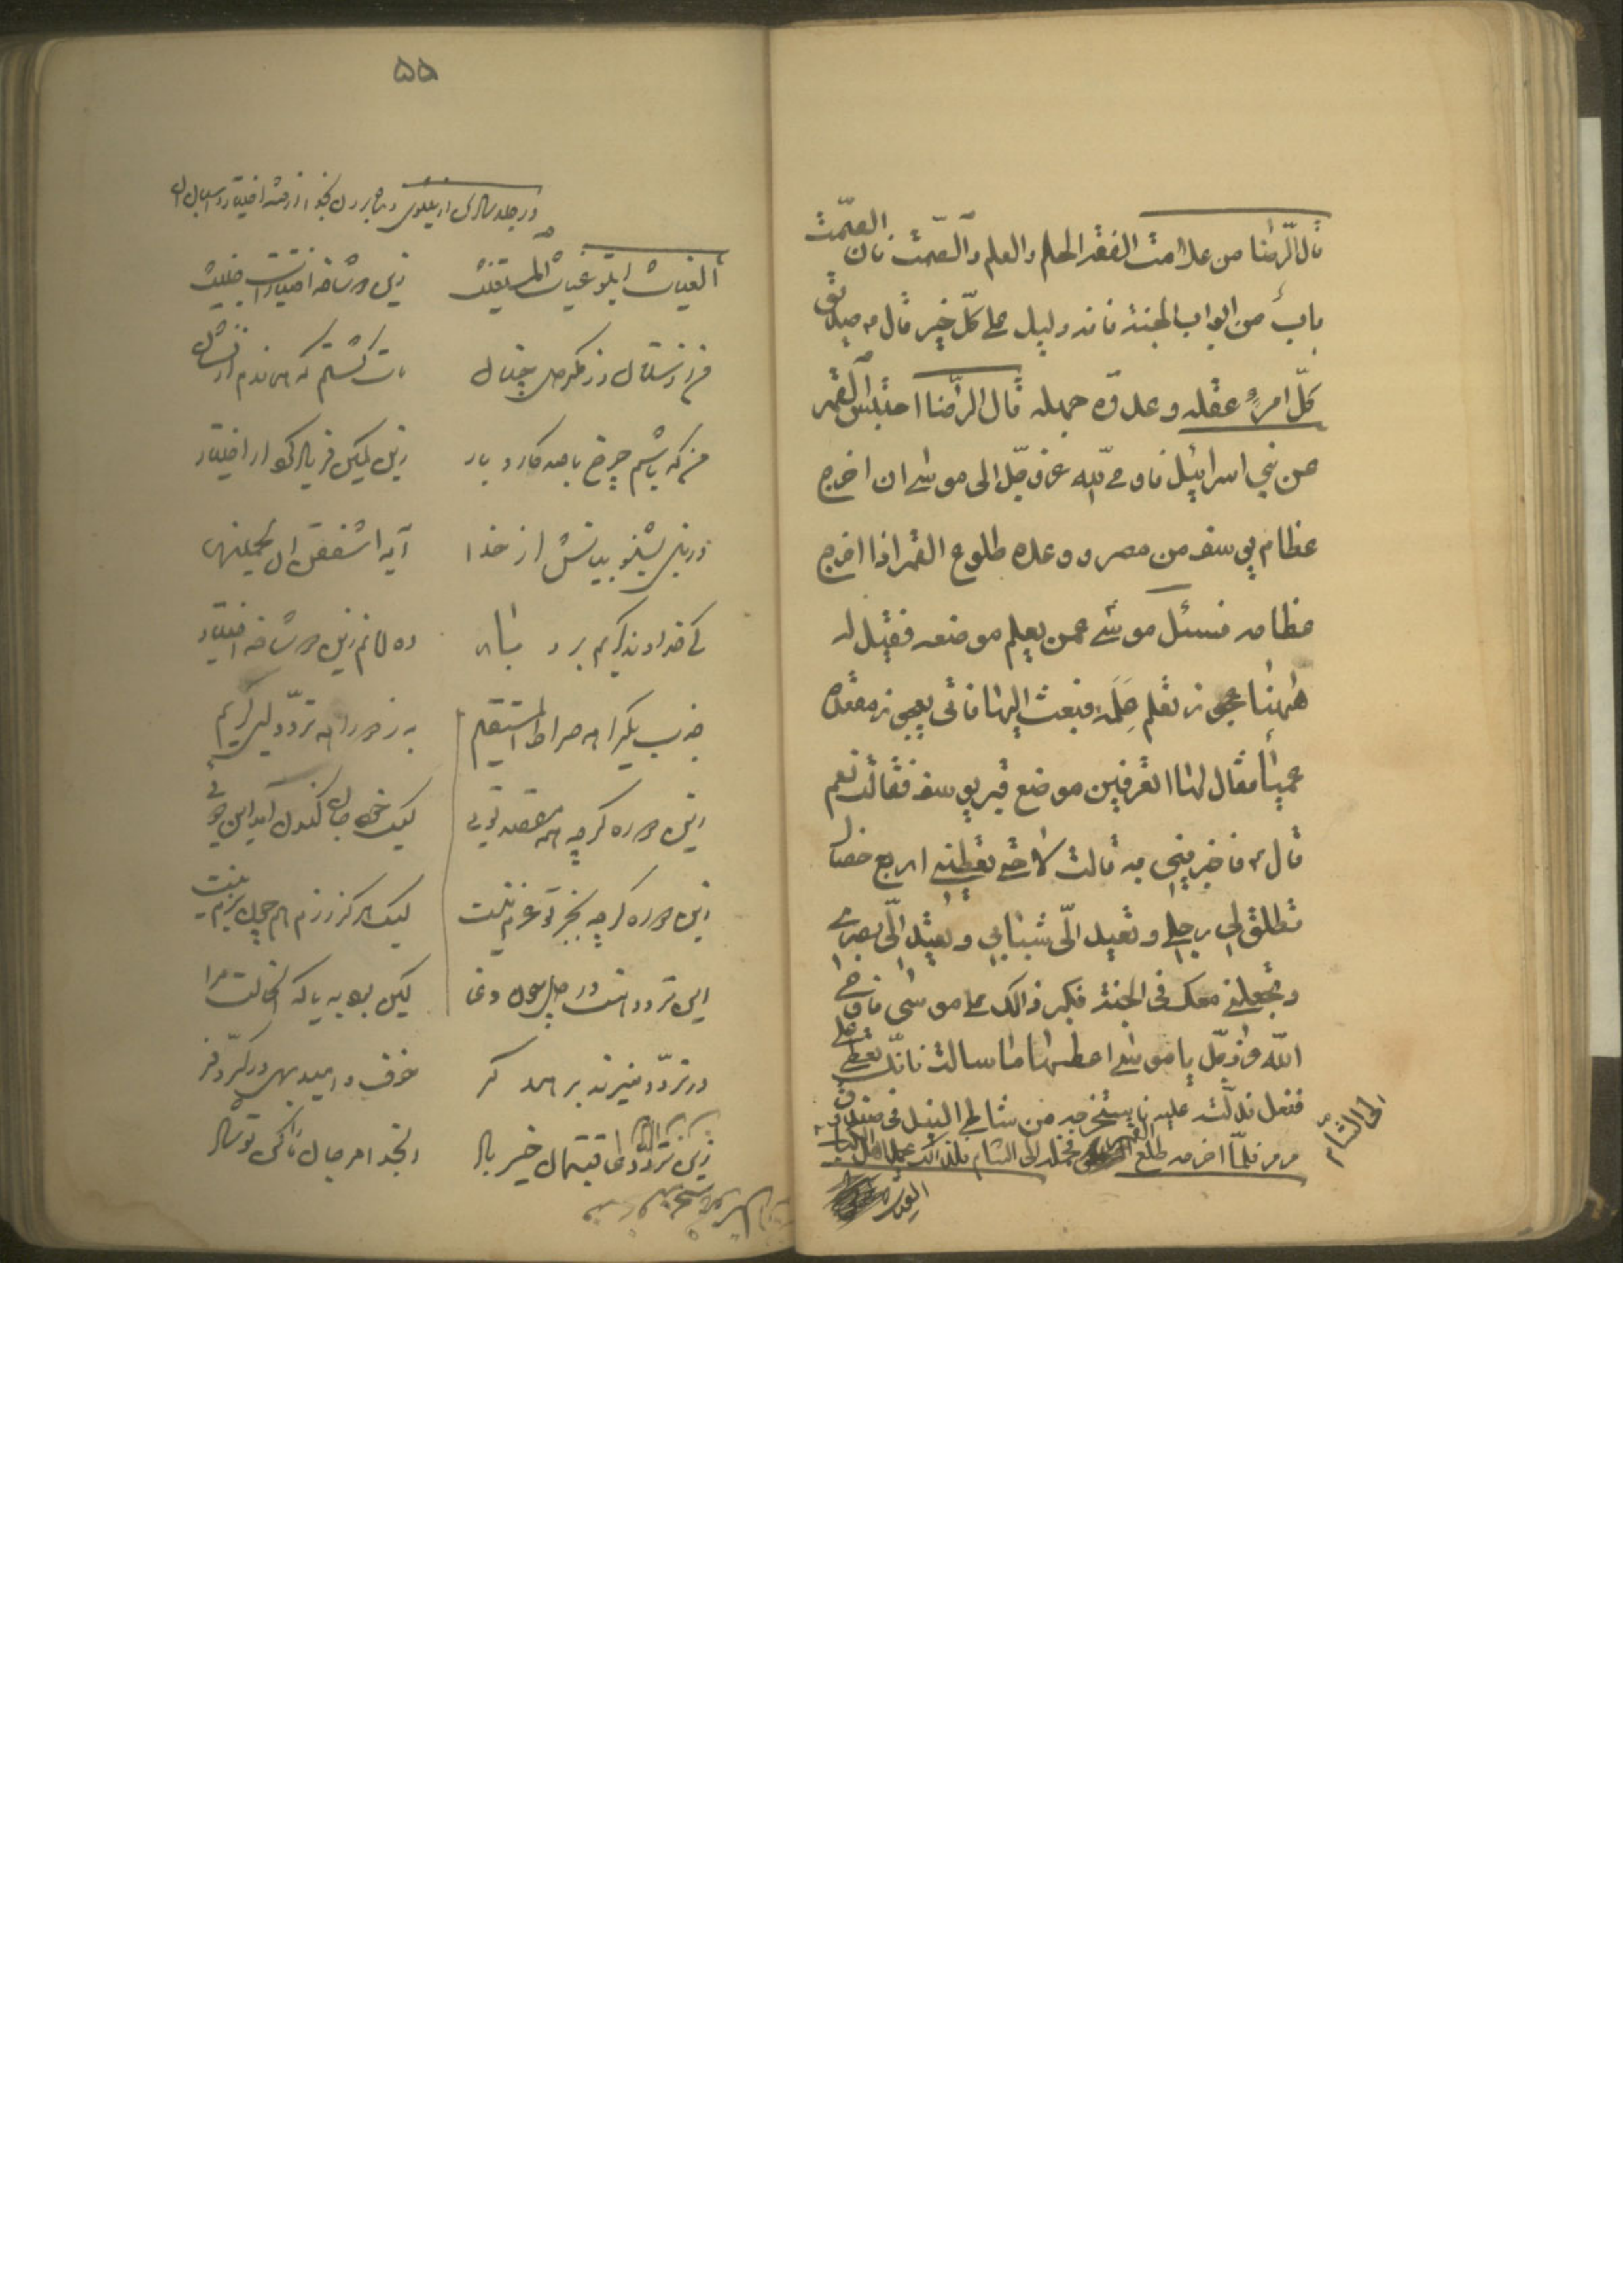 قال الرّضا من علامت الفقه الحلم والعلم والصّمت فان الصمّت
باب من ابواب الجنة فانه دلیل علی کلّ خیر قال ء صدیق
کلّ امرءٍ عقله و عدوّه جهله قال الرّضا احتبس القمر
عن بنی اسرائیل فاوحی الله عز وجلّ الی موسی ان اخرج
عظام یوسف من مصر و وعده طلوع القمر اذا اخرج
عظامه فسئل موسی عمن یعلم موضعه فقیل له
ههنا عجوز تعلم عِلمَه فبعث الیها فاتی بعجوز مقعدة
عمیأ فقال لها اتعرفین موضع قبر یوسف فقالت نعم
قال ء فاخبرینی به قالت لا حتی تعطینی اربع خصال
تطلق لی رجلی و تعید الّی شبابی و تعید الّی بصری
و تجعلنی معک فی الجنة فکبر ذالک علی موسی فاوحی
الله عز وجلّ یا موسی اعطها ما سالت فانّک تعطی علی
ففعل فدلّت علیه فاستخرجه من شاطئ النیل فی صندوق
مرمر فلمّا اخرجه طلع القمر فحمله الی الشام فلذالک تحمل اهل الکتاب
الی الشّام
۵۵
در جلد سادس از مثنوی و پناه بردن بخدا از فتنه اختیار و اسباب آن
الغیاث ای تو غیاث المستغیث
زین دو شاخه اختیارات خبیث
من ز دستان و ز مکر دل چنان
مات گشتم که بماندم از فغان
من که باشم چرخ با صد کار و بار
زین کمین فریاد کرد از اختیار
در نبی بشنو بیانش از خدا
آیه اشفقن ان یحملنها
کای خداوند کریم بردبار
ده امانم زین دو شاخه اختیار
جذب یکراهه صراط المستقیم
به ز دو راهه تردّد ای کریم
زین دو ره گرچه همه مقصد توئی
لیک خود جان کندن آمد این دوئی
زین دو ره گرچه بجز تو عزم نیست
لیک هرگز رزم همچون بزم نیست
این تردد هست در دل چون وغا
کین بود به یا که آن حالت مرا
در تردّد میزند بر همدگر
خوف و امید بهی در کرّ و فر
زین تردّد عاقبتمان خیر باد
ای خدا مر جان ما را کن تو شاد